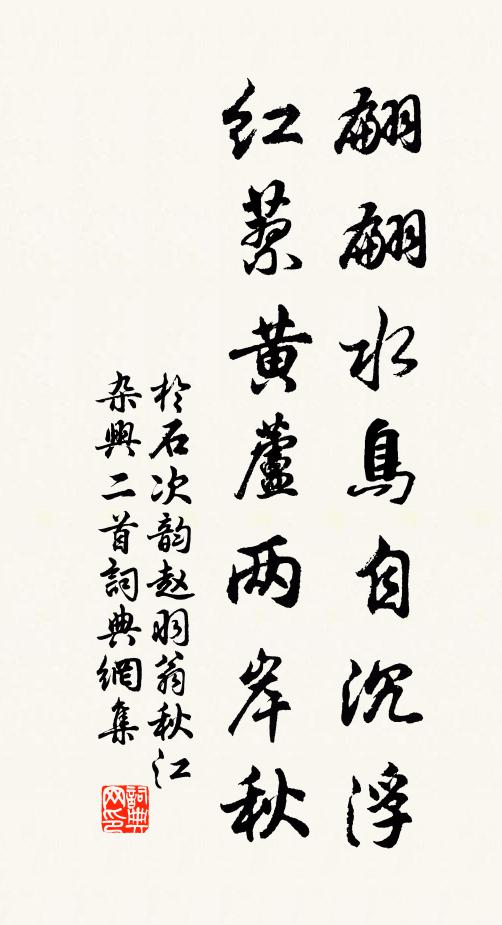 翩翩水鳥自沉浮
红蓼黄蘆两岸秋
於石次韵赵羽翁秋江
杂興二首詞典網集
詞典网印